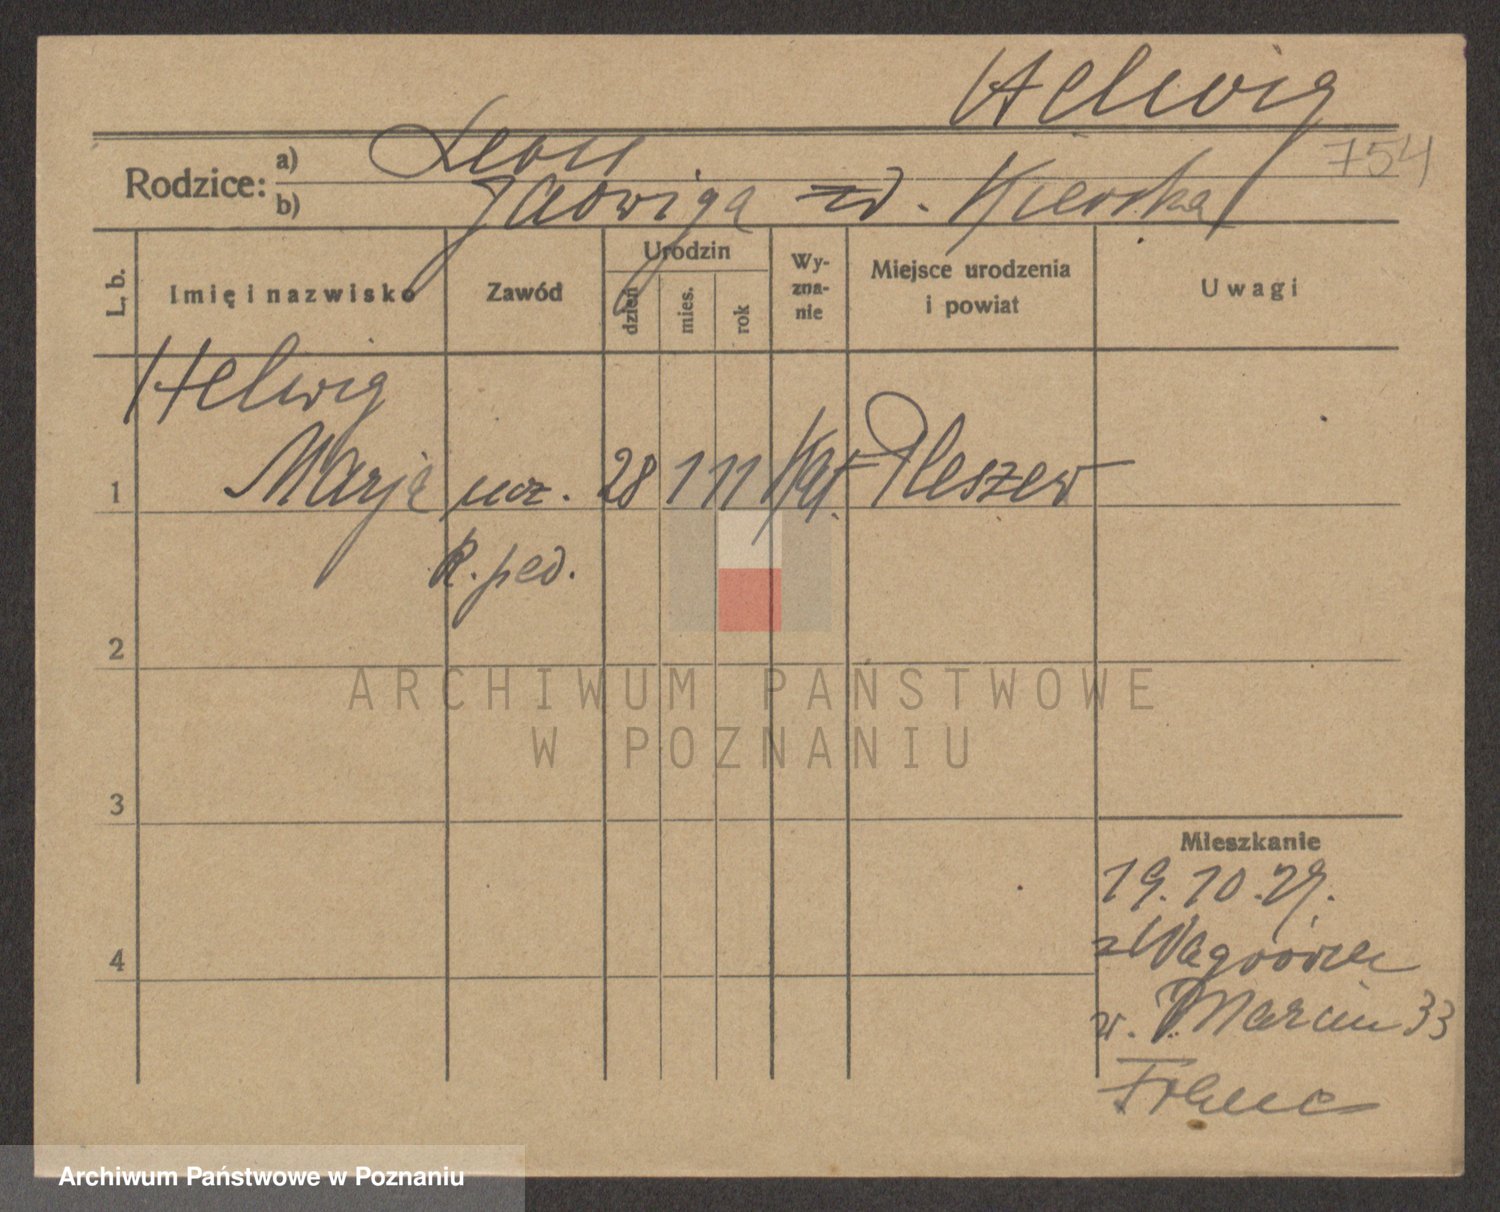 Helwig
754
Rodzice: a) Leon
b) Jadwiga zd. Kierska
L. b. Imię i nazwisko Zawód Urodzin dzień mies. rok Wy-zna-nie Miejsce urodzenia i powiat Uwagi
Helwig
1 Marja ucz. 28 1 11 Kat Pleszew
K. ped.
2
3
Mieszkanie
19.10.29.
z Wągrówca
4
w. Marcin 33
ARCHIWUM PAŃSTWOWE
W POZNANIU
Archiwum Państwowe w Poznaniu